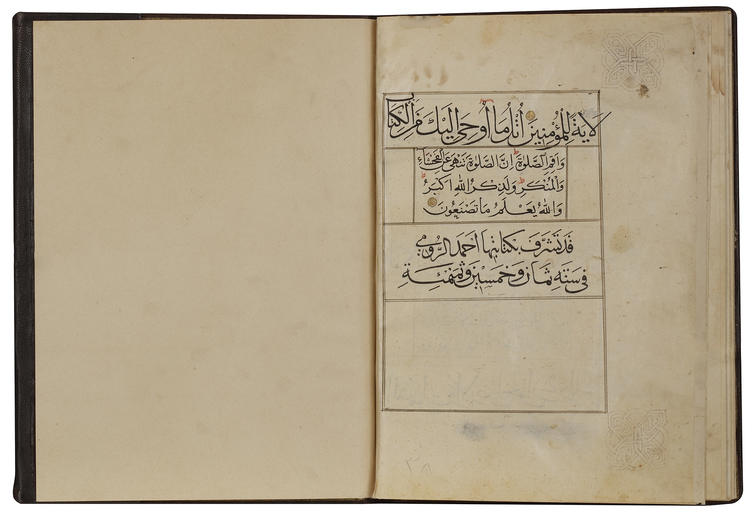 لَآيَةً لِلْمُؤْمِنِينَ اُتْلُ مَا أُوحِيَ إِلَيْكَ مِنَ الْكِتَابِ
وَأَقِمِ الصَّلٰوةَ إِنَّ الصَّلٰوةَ تَنْهَى عَنِ الْفَحْشَاءِ
وَالْمُنْكَرِ وَلَذِكْرُ اللّٰهِ أَكْبَرُ
وَاللّٰهُ يَعْلَمُ مَا تَصْنَعُونَ
قَدْ تَشَرَّفَ بِكِتَابَتِهَا أَحْمَدُ الرُّومِي
فِي سَنَةِ ثَمَانٍ وَخَمْسِينَ وَثَمَنْمِئَةٍ
٢٨